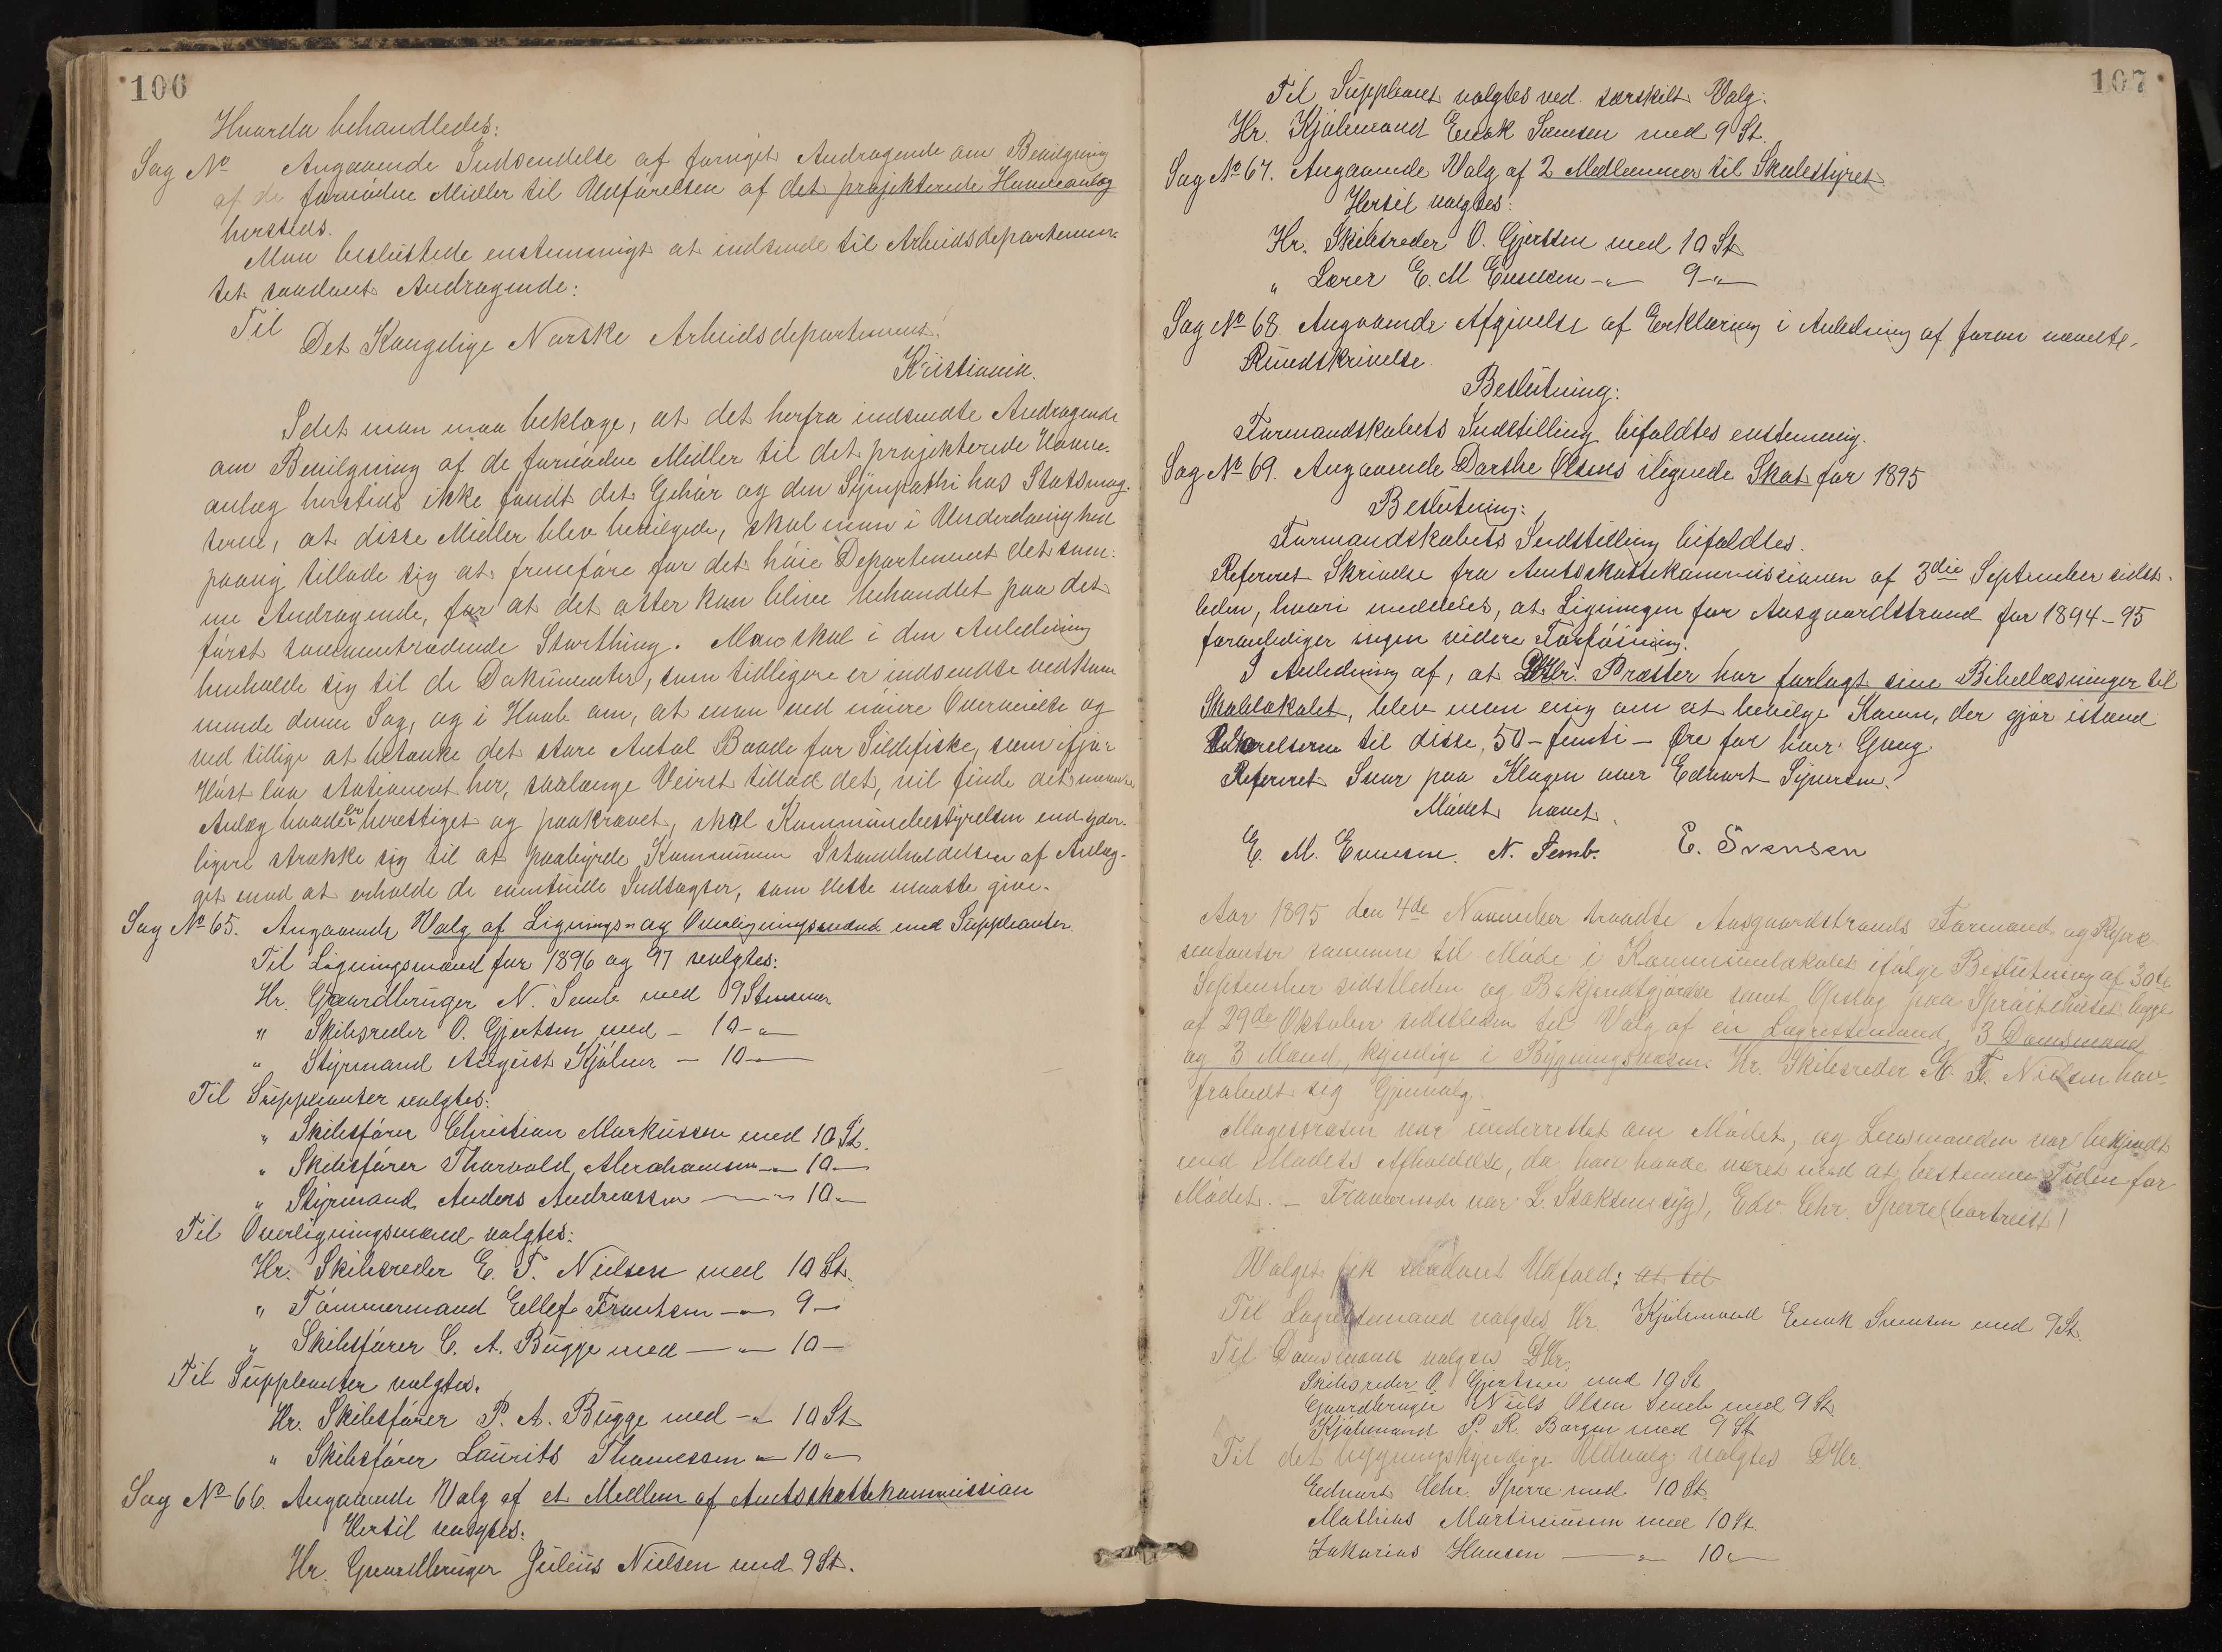 106
Hvorda behandledes:
Sag No Angaaende Indsendelse af fornyet Andragende om Bevilgning
af de fornødne Midler til Udførelsen af det projekterede Havneanlæg
hersteds.
Man besluttede enstemmigt at indsende til Arbeidsdepartemen-
tet saadant Andragende:
Til
Det Kongelige Norske Arbeidsdepartement!
Kristiania.
Idet man maa beklage, at det herfra indsendte Andragende
om Bevilgning af de fornødne Midler til det projekterede Havne-
anlæg hersteds ikke fandt det Gehør og den Sympathi hos Statsmag-
terne, at disse Midler blev bevilgede, skal man i Underdanighed
paany tillade sig at fremføre for det høie Departement det sam-
me Andragende, for at det atter kan blive behandlet paa det
først sammentrædende Storthing. Man skal i den Anledning
henholde sig til de Dokumenter, som tidligere er indsendte vedkom
mende denne Sag, og i Haab om, at man ved nøiere Overveielse og
ved tillige at betænke det store Antal Baade for Sildefiske, som ifjor
Høst laa stationeret her, saalænge Veiret tillod det, vil finde det nævnte
Anlæg baade er berettiget og paakrævet, skal Kommunebestyrelsen end yder-
ligere strække sig til at paabyrde Kommunen Istandholdelsen af Anlæg-
get mod at erholde de eventuelle Indtægter, som dette maatte give.
Sag No 65. Angaaende Valg af Lignings- og Overligningsmænd med Suppleanter.
Til Ligningsmænd for 1896 og 97 valgtes:
Hr. Gaardbruger N. Semb med 9 Stemmer
" Skibsreder O. Gjertsen med - 10 - "
" Styrmand August Kjølner - 10 -
Til Suppleanter valgtes:
" Skibsfører Christian Markussen med 10 St.
" Skibsfører Thorvald Abrahamsen - " 10 -
" Styrmand Anders Andreassen - " 10 "
Til Overligningsmænd valgtes:
Hr. Skibsreder E. T. Nielsen med 10 St.
" Tømmermand Ellef Frantsen - " 9 -
" Skibsfører C. A. Bugge med - " 10 -
Til Suppleanter valgtes.
Hr. Skibsfører P. A. Bugge med - " 10 St
" Skibsfører Laurits Thomessen " 10 "
Sag No 66. Angaaende Valg af et Medlem af Amtsskattekommission
Hertil valgtes:
Hr. Gaardbruger Julius Nielsen med 9 St.
107
Til Suppleant valgtes ved særskilt Valg:
Hr. Kjøbmand Enok Svensen med 9 St.
Sag No 67. Angaaende Valg af 2 Medlemmer til Skolestyret
Hertil valgtes:
Hr. Skibsreder O. Gjertsen med 10 St
" Lærer E. M. Evensen - " 9 - "
Sag No 68. Angaaende Afgivelse af Erklæring i Anledning af foran nævnte
Rundskrivelse.
Beslutning:
Formandskabets Indstilling bifaldtes enstemmig.
Sag No 69. Angaaende Dorthe Olsens ilignede Skat for 1895
Beslutning:
Formandskabets Indstilling bifaldtes.
Refereret Skrivelse fra Amtsskattekommissionen af 3die September sidst-
leden, hvori meddeles, at Ligningen for Aasgaardstrand for 1894-95
foranlediger ingen videre Forføining.
I Anledning af, at DHr. Præster har forlagt sine Bibellæsninger til
Skolelokalet, blev man enig om at bevilge Konen, der gjør istand
Værelserne til disse, 50 - femti - Øre for hver Gang.
Refereret Svar paa Klagen over Edvart Syversen.
Mødet hævet.
E. M. Evensen. N. Semb. E. Svensen
Aar 1895 den 4de November traadte Aasgaardstrands Formænd og Repræ-
sentanter sammen til Møde i Kommunelokalet ifølge Beslutning af 30te
September sidstleden og Bekjendtgjørelse samt Opslag paa Sprøitehusets Vægge
af 29de Oktober sidstleden til Valg af en Lagrettemand, 3 Domsmænd
og 3 Mænd, kyndige i Bygningsvæsen. Hr. Skibsreder E. T. Nielsen hav-
frabedt sig Gjenvalg.
Magistraten var underrettet om Mødet, og Lensmanden var bekjendt
med Mødets Afholdelse, da han havde været med at bestemme Tiden for
Mødet. - Fraværende var L. Isaksen (syg), Edv. Chr. Sperre (bortreist)
Valget fik saadant Udfald: at til
Til Lagrettemand valgtes Hr. Kjøbmand Enok Svensen med 9 St.
Til Domsmænd valgtes DHr:
Skibsreder O. Gjertsen med 10 St
Gaardbruger Niels Olsen Semb med 9 St.
Kjøbmand P. R. Borgen med 9 St
Til det bygningskyndige Udvalg valgtes DHr.
Edvart Chr. Sperre med 10 St.
Mathias Martiniusen med 10 St.
Zakarias Hansen - " 10 "